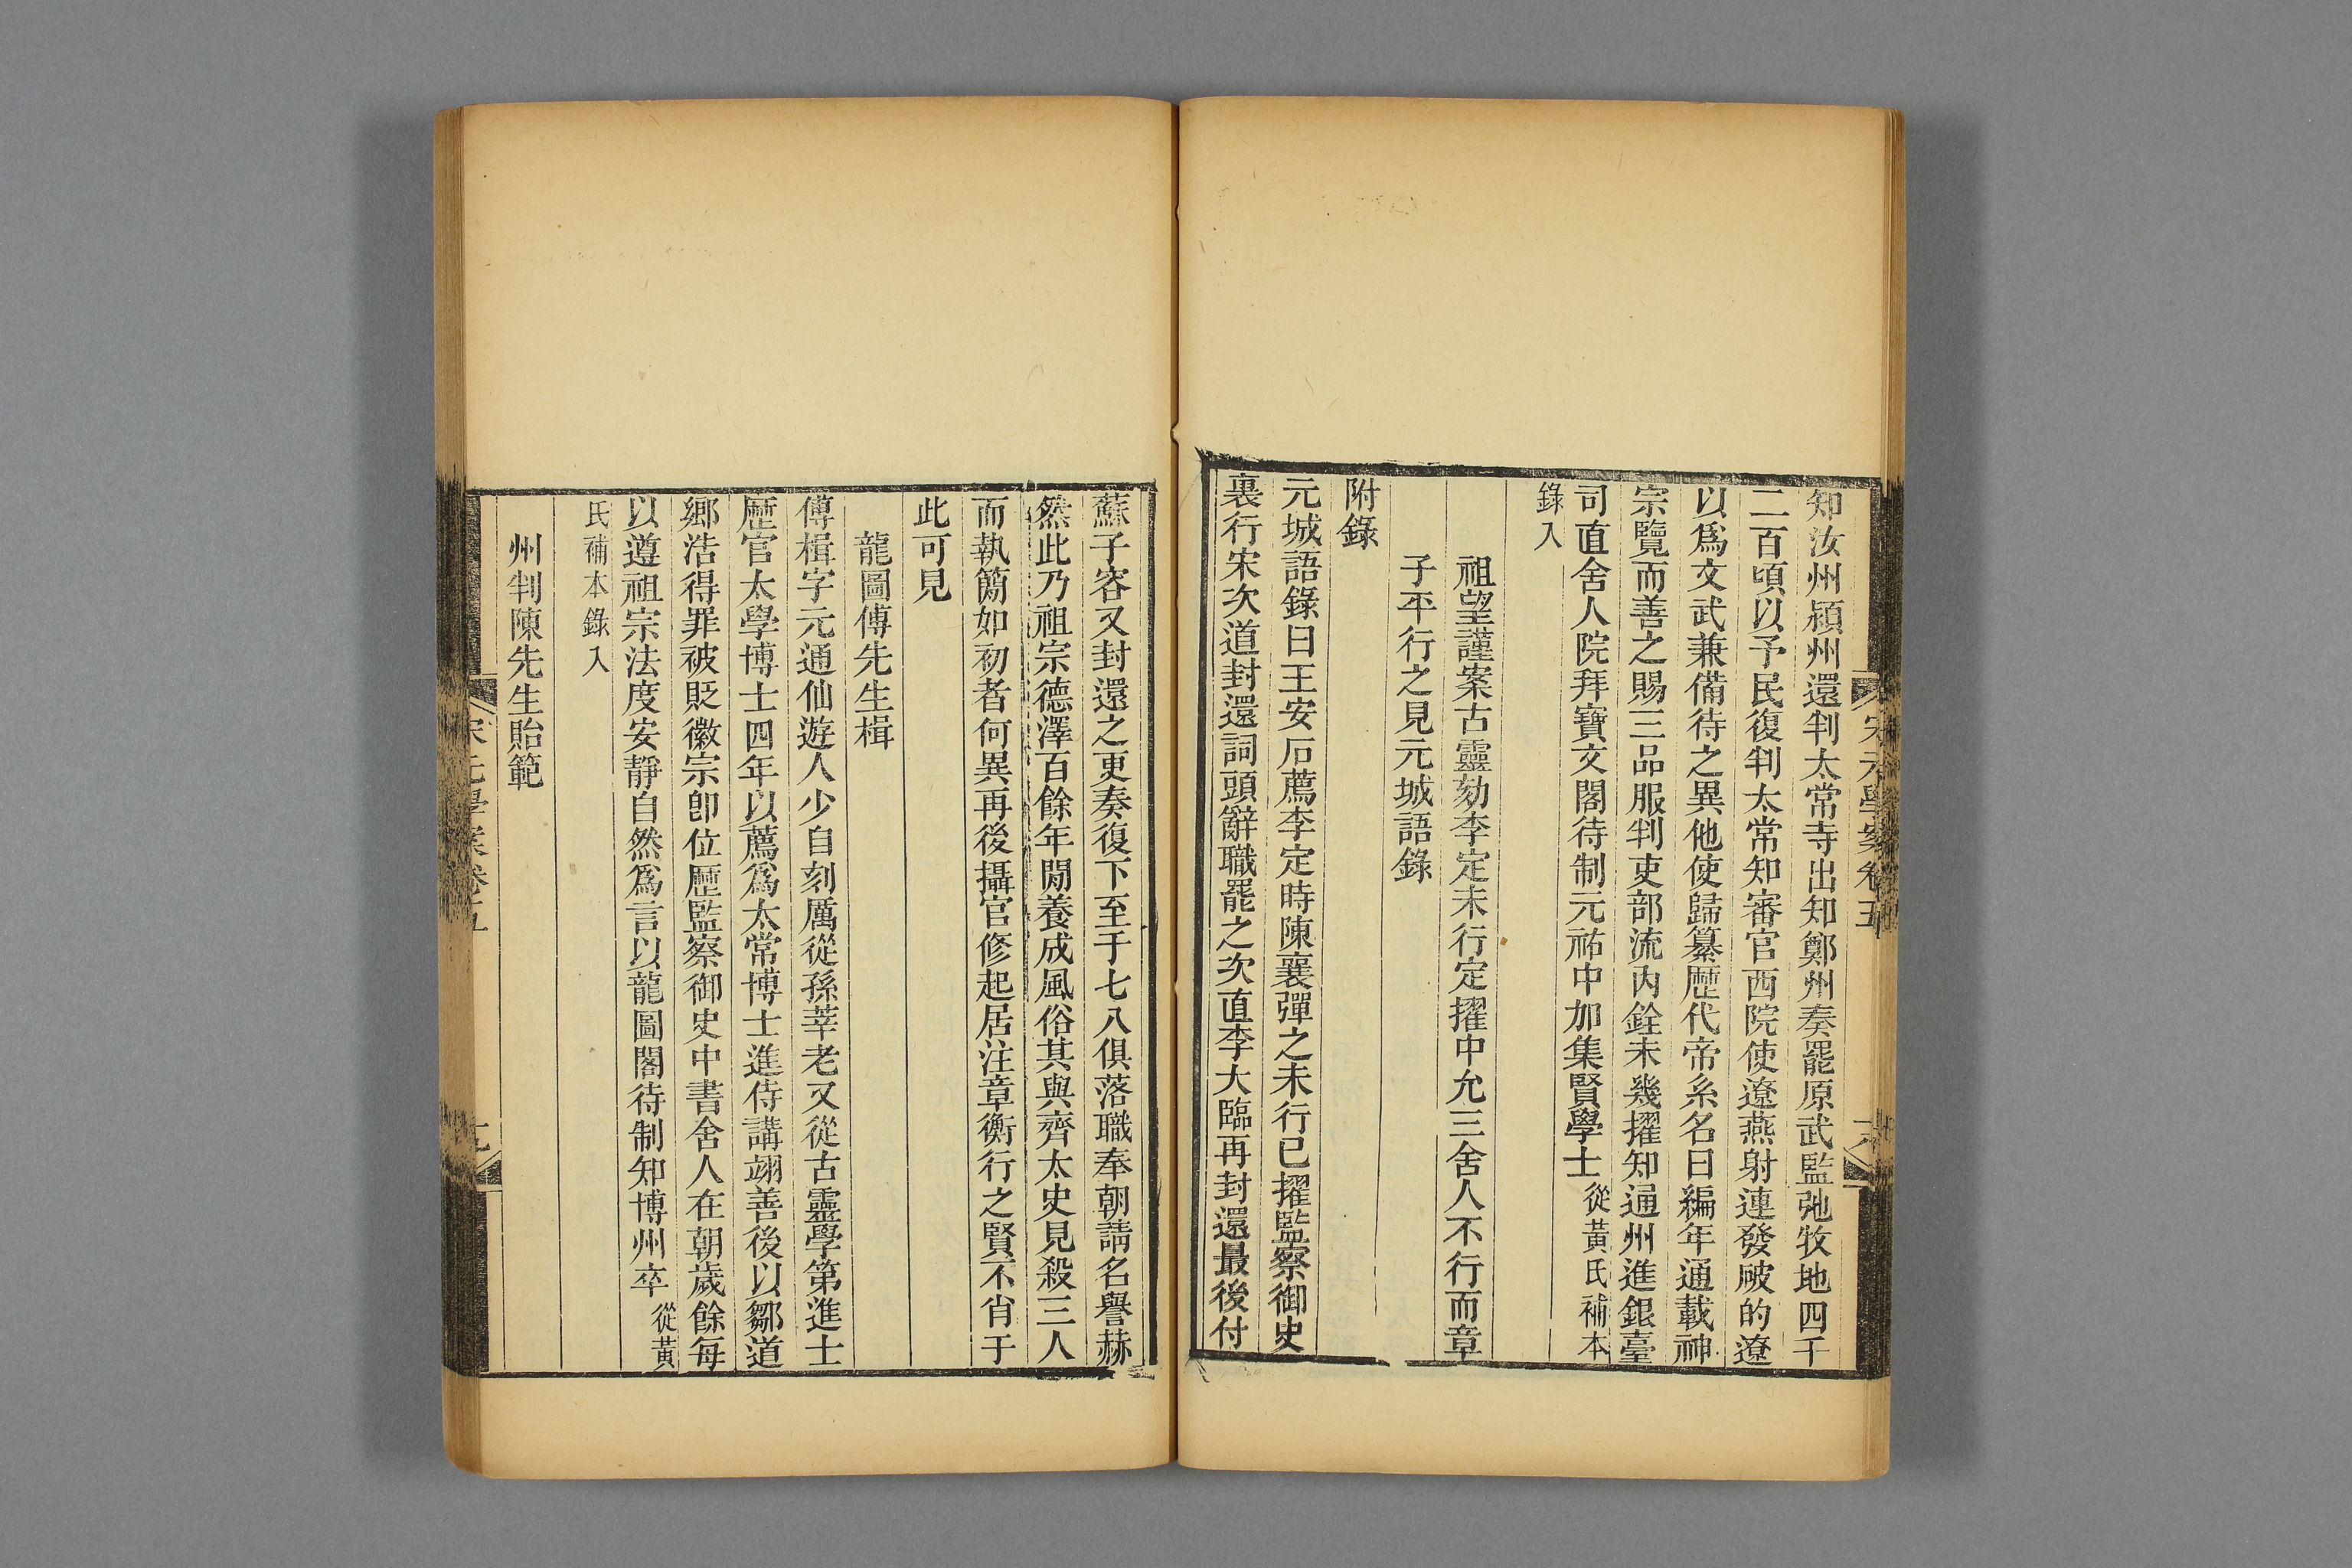 知汝州潁州還判太常寺出知鄭州奏罷原武監弛牧地四千
二百頃以予民復判太常知審官西院使遼燕射連發破的遼
以爲文武兼備待之異他使歸纂歷代帝系名曰編年通載神
宗覽而善之賜三品服判吏部流內銓未幾擢知通州進銀臺
司直舍人院拜寶文閣待制元祐中加集賢學士從黃氏補本
錄入
祖望謹案古靈劾李定未行定擢中允三舍人不行而章
子平行之見元城語錄
附錄
元城語錄曰王安石薦李定時陳襄彈之未行已擢監察御史
裏行宋次道封還詞頭辭職罷之次直李大臨再封還最後付
蘇子容又封還之更奏復下至于七八俱落職奉朝請名譽赫
然此乃祖宗德澤百餘年閒養成風俗其與齊太史見殺三人
而執簡如初者何異再後攝官修起居注章衡行之賢不肖于
此可見
龍圖傅先生楫
傅楫字元通仙遊人少自刻厲從孫莘老又從古靈學第進士
歷官太學博士四年以薦爲太常博士進侍講翊善後以鄒道
鄉浩得罪被貶徽宗卽位歷監察御史中書舍人在朝歲餘每
以遵祖宗法度安靜自然爲言以龍圖閣待制知博州卒從黃
氏補本錄入
州判陳先生貽範